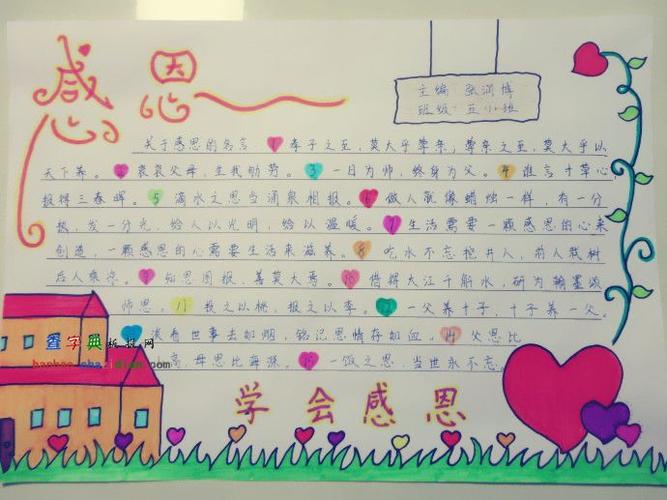 感恩
主编 张润博
班级 五小班
关于感恩的名言。1 孝子之至,莫大乎尊亲;尊亲之至,莫大乎以
天下养。2 哀哀父母,生我劬劳。3 一日为师,终身为父。4 谁言寸草心,
报得三春晖。5 滴水之恩当涌泉相报。6 做人就像蜡烛一样,有一分
热,发一分光,给人以光明,给以温暖。7 生活需要一颗感恩的心来
创造,一颗感恩的心需要生活来滋养。8 吃水不忘挖井人,前人栽树
后人乘凉。9 知恩图报,善莫大焉。10 借得大江千斛水,研为翰墨颂
师恩。11 投之以桃,报之以李。12 一父养十子,十子养一父。
淡看世事去如烟,铭记恩情存如血。14 父恩比
高,母恩比海深。15 一饭之恩,当世永不忘。
查字典板报网
banbao.chazidian.com
学会感恩